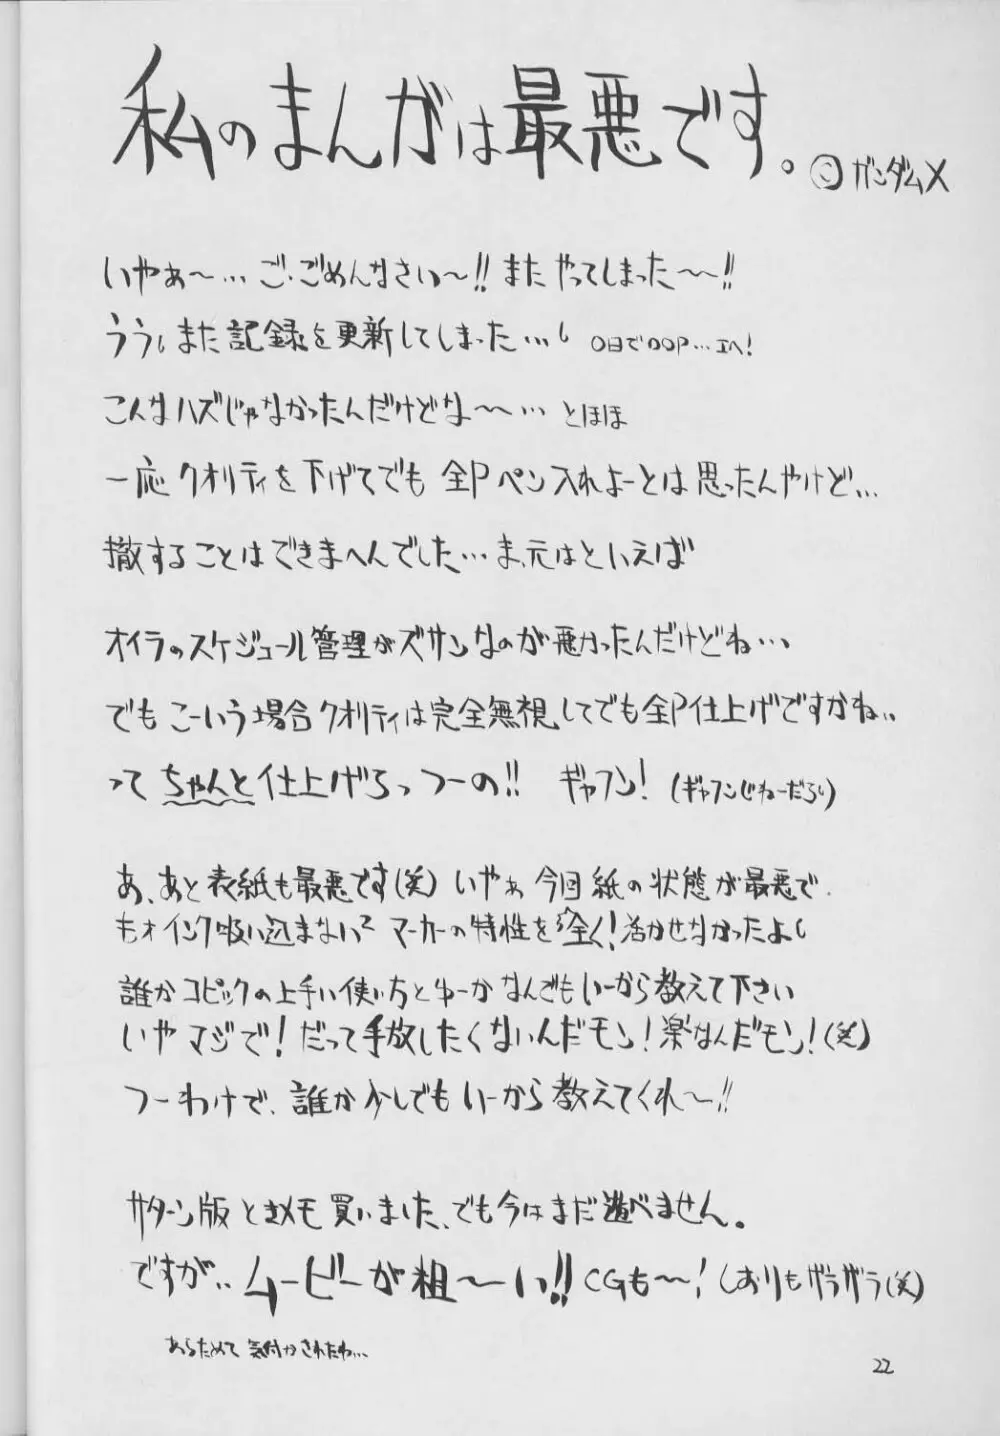 私のまんがは最悪です。 ©ガンダムX
いやぁ〜… ご・ごめんなさい〜!! また やってしまった〜〜!!
うう、また 記録を更新してしまった…、 0日で00P…エヘ!
こんなハズじゃなかったんだけどな〜〜… とほほ
一応 クオリティを下げてでも 全Pペン入れよーとは思ったんやけど…
撤することはできまへんでした… ま、元はといえば
オイラのスケジュール管理がズサンなのが悪かったんだけどね…、
でも こーいう場合クオリティは完全無視してでも全P仕上げですかね..
って ちゃんと仕上げろっつーの!! ギャフン! (ギャフンじねーだろ)
あ、あと 表紙も最悪です(笑) いやぁ 今回 紙の状態が最悪で.
もォインク吸い込まないって マーカーの特性を全く!活かせなかったよ
誰か コピックの上手い使い方とゆーか なんでもいーから教えて下さい
いや マジで! だって手放したくないんだモン! 楽なんだモン! (笑)
つーわけで、誰か少しでもいーから 教えてくれ〜!!
サターン版 ときメモ 買いました、でも今はまだ遊べません。
ですが.. ムービーが粗〜い!! CGも〜! しおりもザラザラ(笑)
あらためて 気付かされたわ…
22